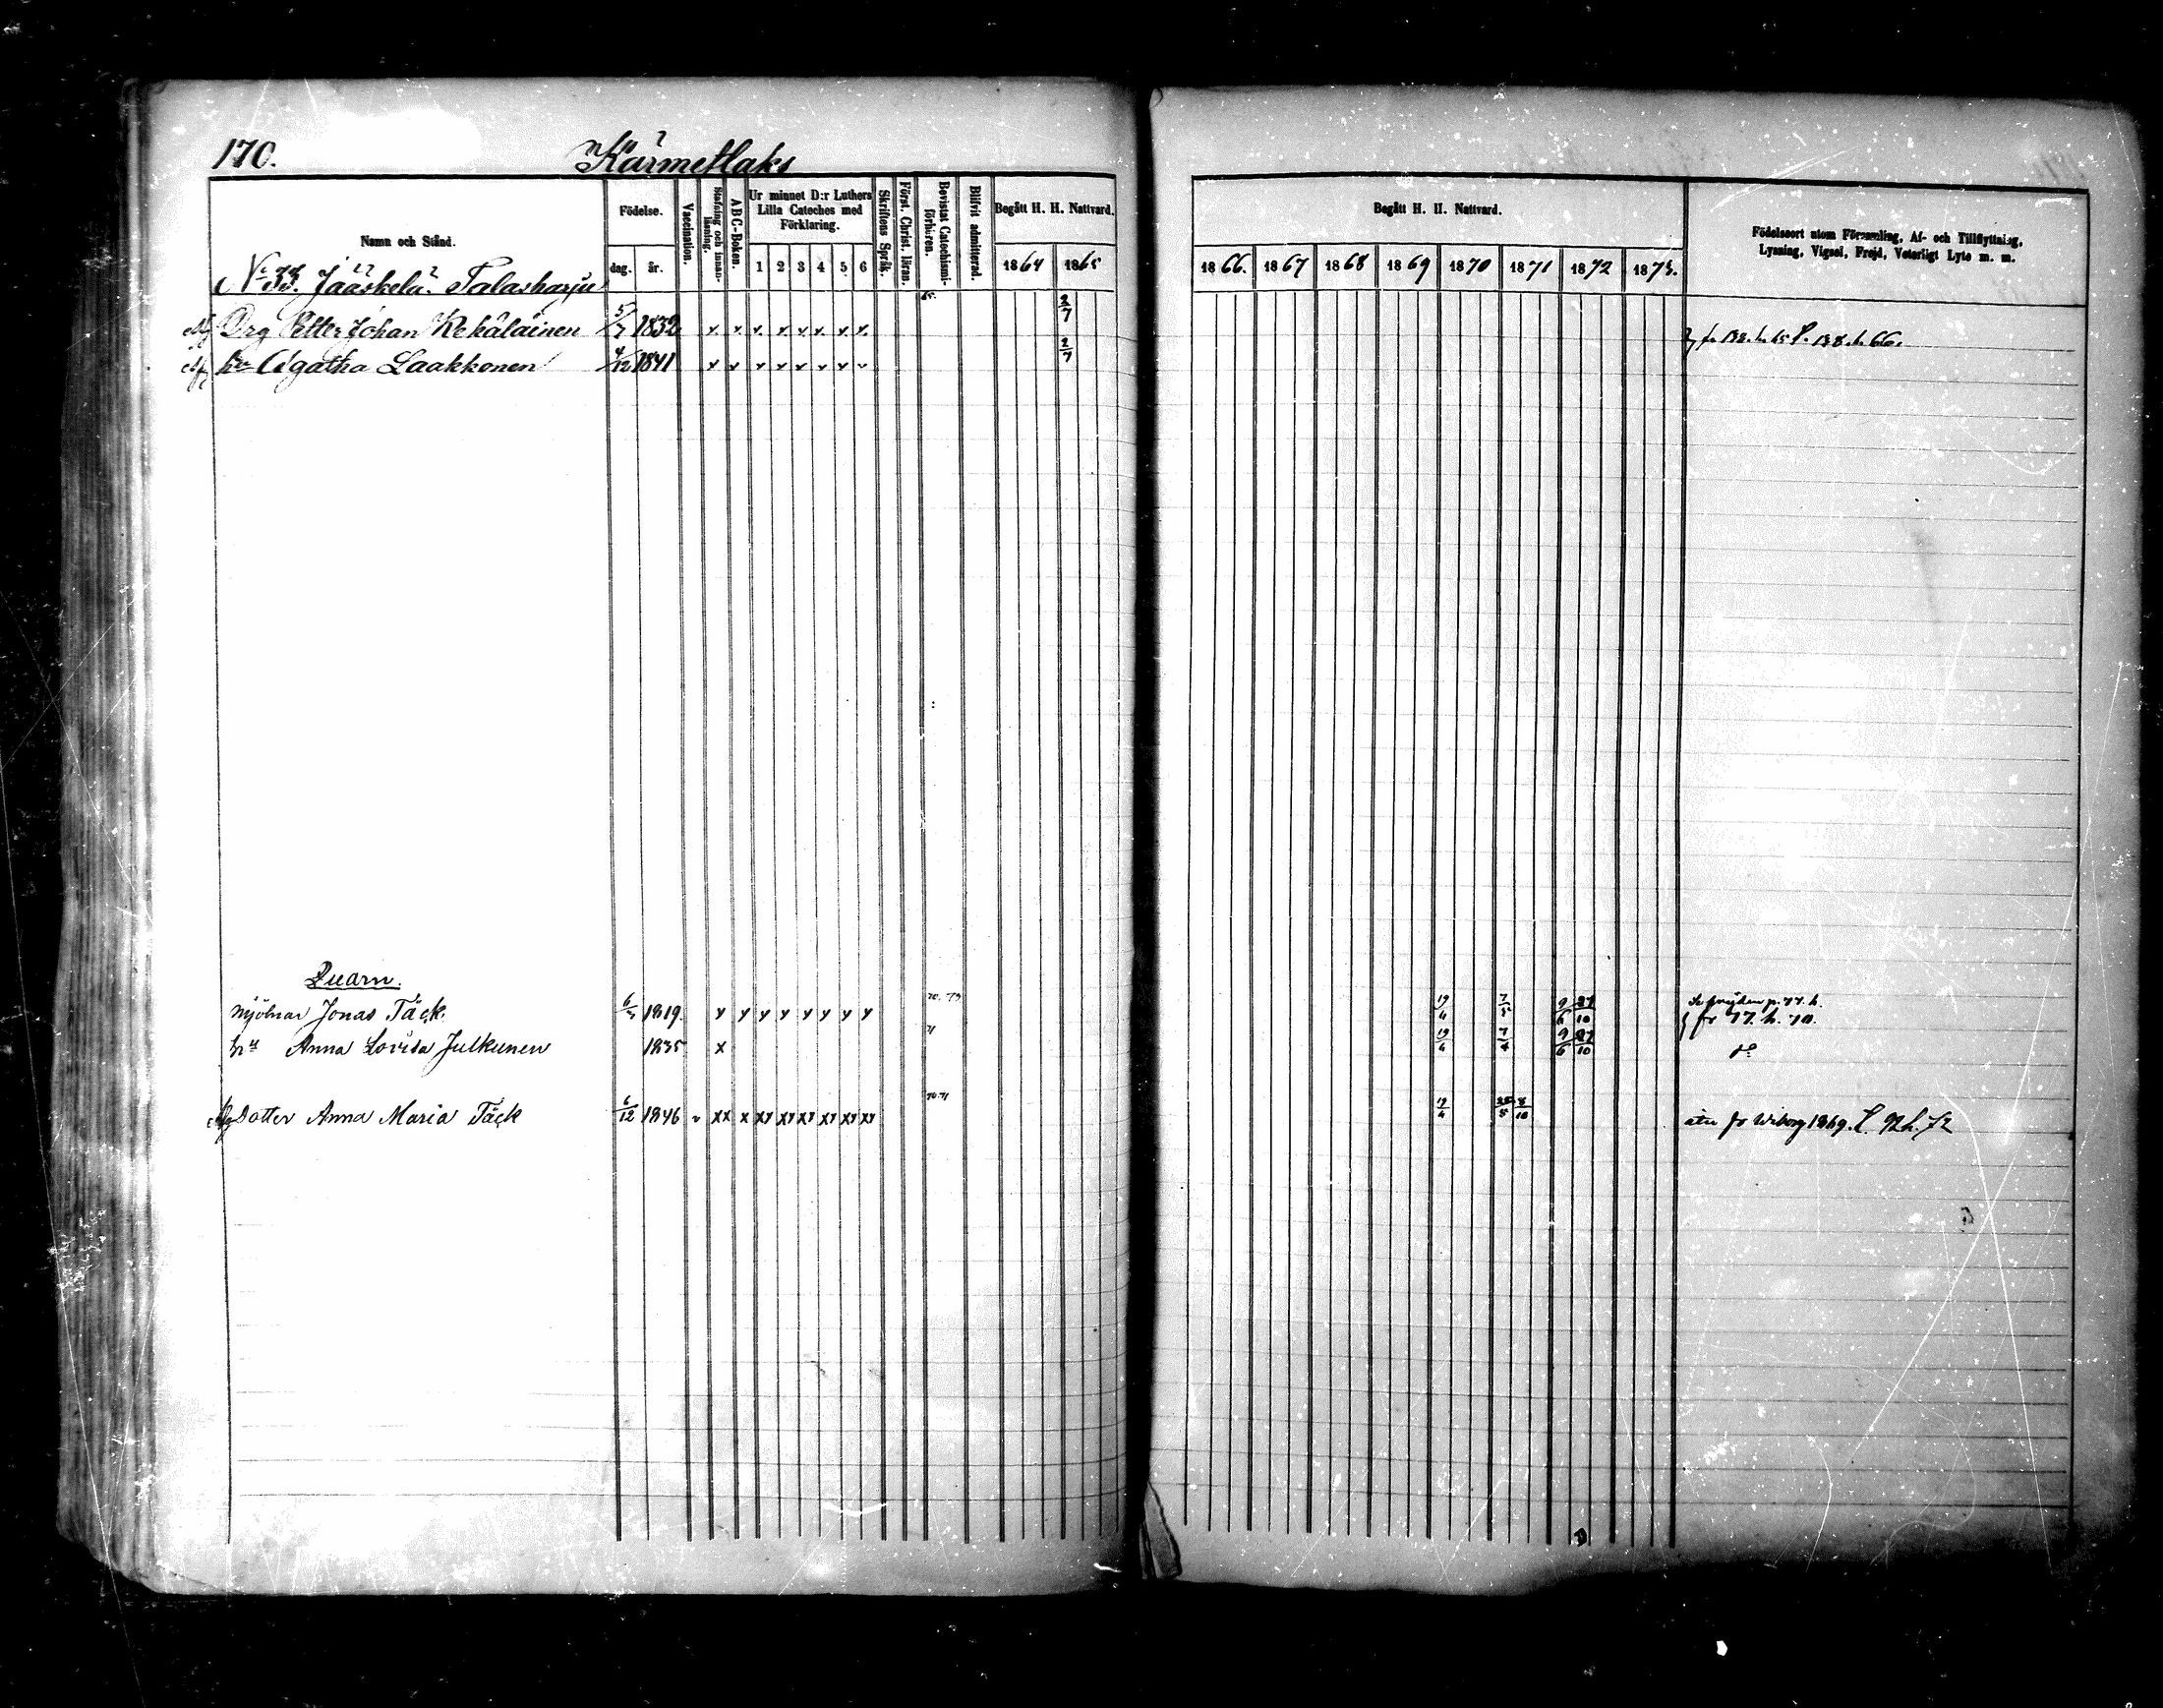 170.
Kärmetlaks
Namn och Stånd.
Födelse.
dag.
år.
Vaccination.
Stafning och innan-läsning.
ABC-Boken.
Ur minnet D:r Luthers Lilla Cateches med Förklaring.
1 2 3 4 5 6
Skriftens Språk.
Först. Christ. läran.
Bevistat Catechismi-förhören.
Blifvit admitterad.
Begått H. H. Nattvard.
1864 1865
Begått H. H. Nattvard.
1866. 1867 1868 1869 1870 1871 1872 1873.
Födelseort utom Församling, Af- och Tillflyttning,
Lysning, Vigsel, Frejd, Vaterligt Lyte m. m.
No 33. Jääskelä. Talasharju
Drg Petter Johan Kekäläinen 5/7 1832 x x x x x x x x 65. 2/7 fr 138. h. 65 l. 138. h. 66.
hu Agatha Laakkonen 4/12 1841 x x x x x x x x 2/7
Quarn.
Mjölnar Jonas Täck. 6/7 1819. x x x x x x x x 19/4 7/5 9/6 27/10 fr 77. h. 70.
hu Anna Lovisa Julkunen 1835 x 71 19/4 7/4 9/6 27/10 do
Dotter Anna Maria Täck 6/12 1846 xx x xx xx xx xx xx xx 70.71 19/4 8/10 åter fr Wiborg 1869. l. 92 h. 72